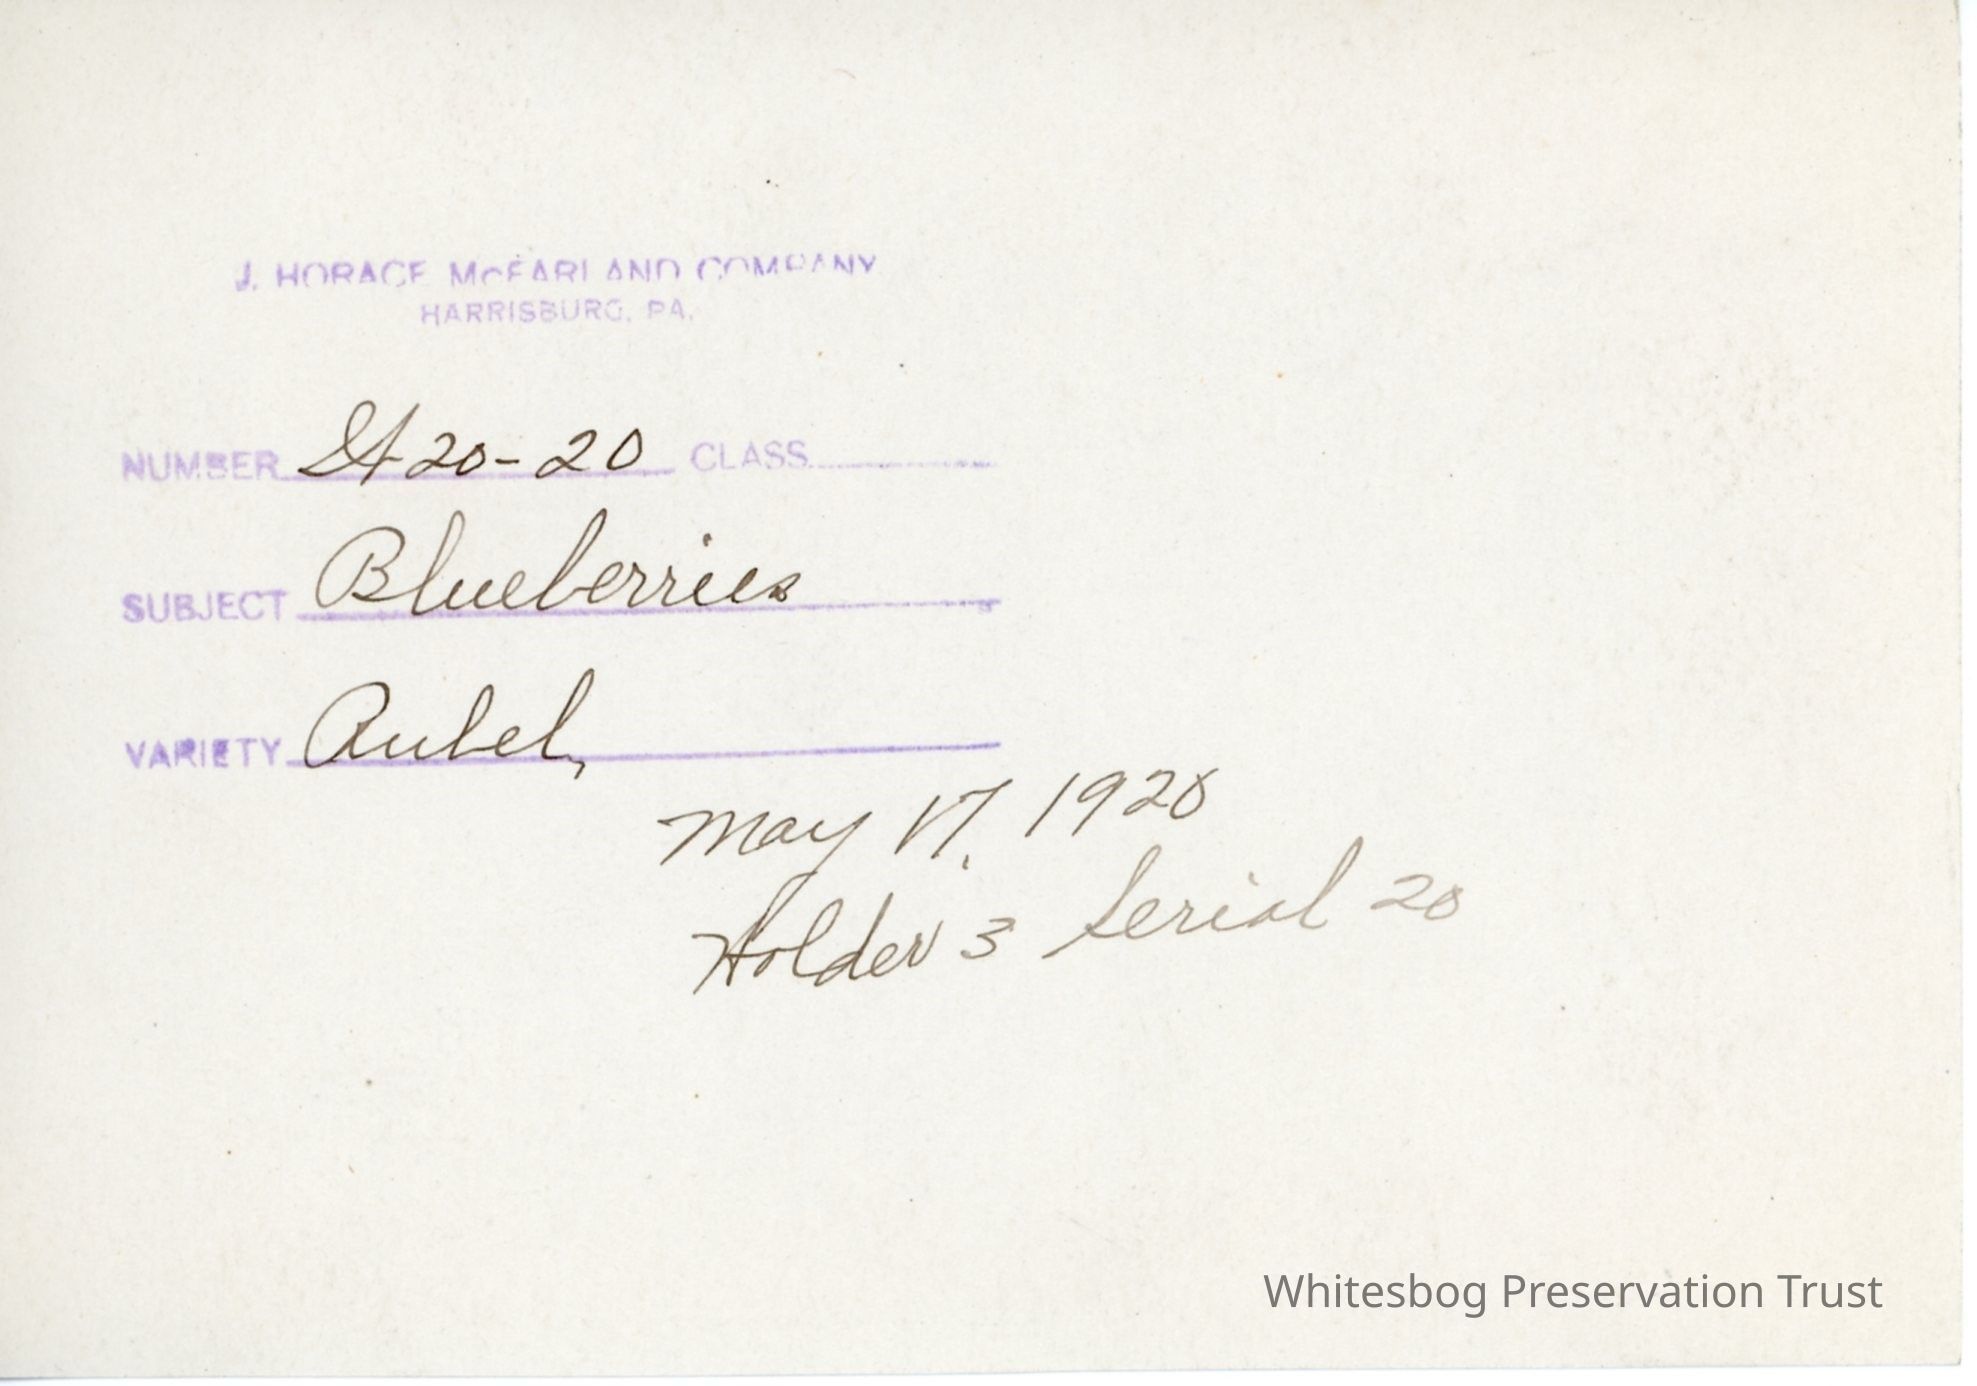 J. HORACE McFARLAND COMPANY
HARRISBURG, PA.
NUMBER St 20-20 CLASS
SUBJECT Blueberries
VARIETY Rubel,
May 17, 1920
Holder 3 Serial 20
Whitesbog Preservation Trust